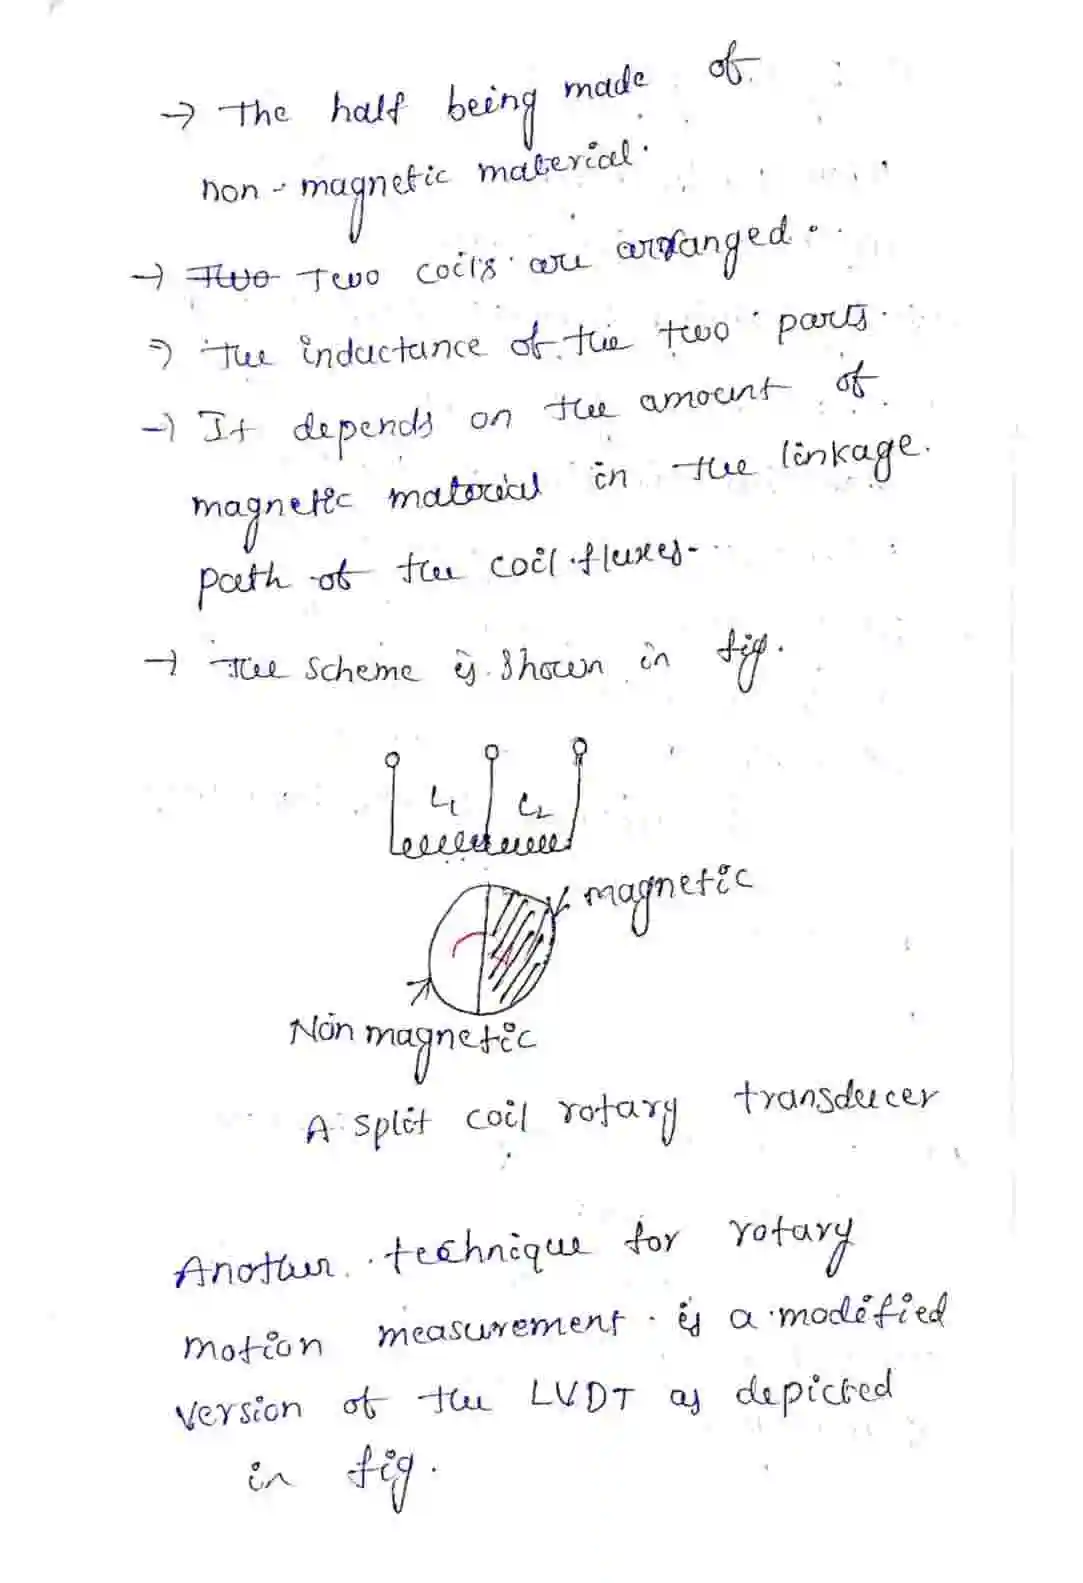 → The half being made of
non-magnetic material.
→ Two Two coils are arranged.
⇒ The inductance of the two parts.
→ It depends on the amount of
magnetic material in the linkage.
path of the coil fluxes.
→ The scheme is shown in fig.
L1 L2
magnetic
Non magnetic
A split coil rotary transducer
Another technique for rotary
motion measurement is a modified
version of the LVDT as depicted
in fig.